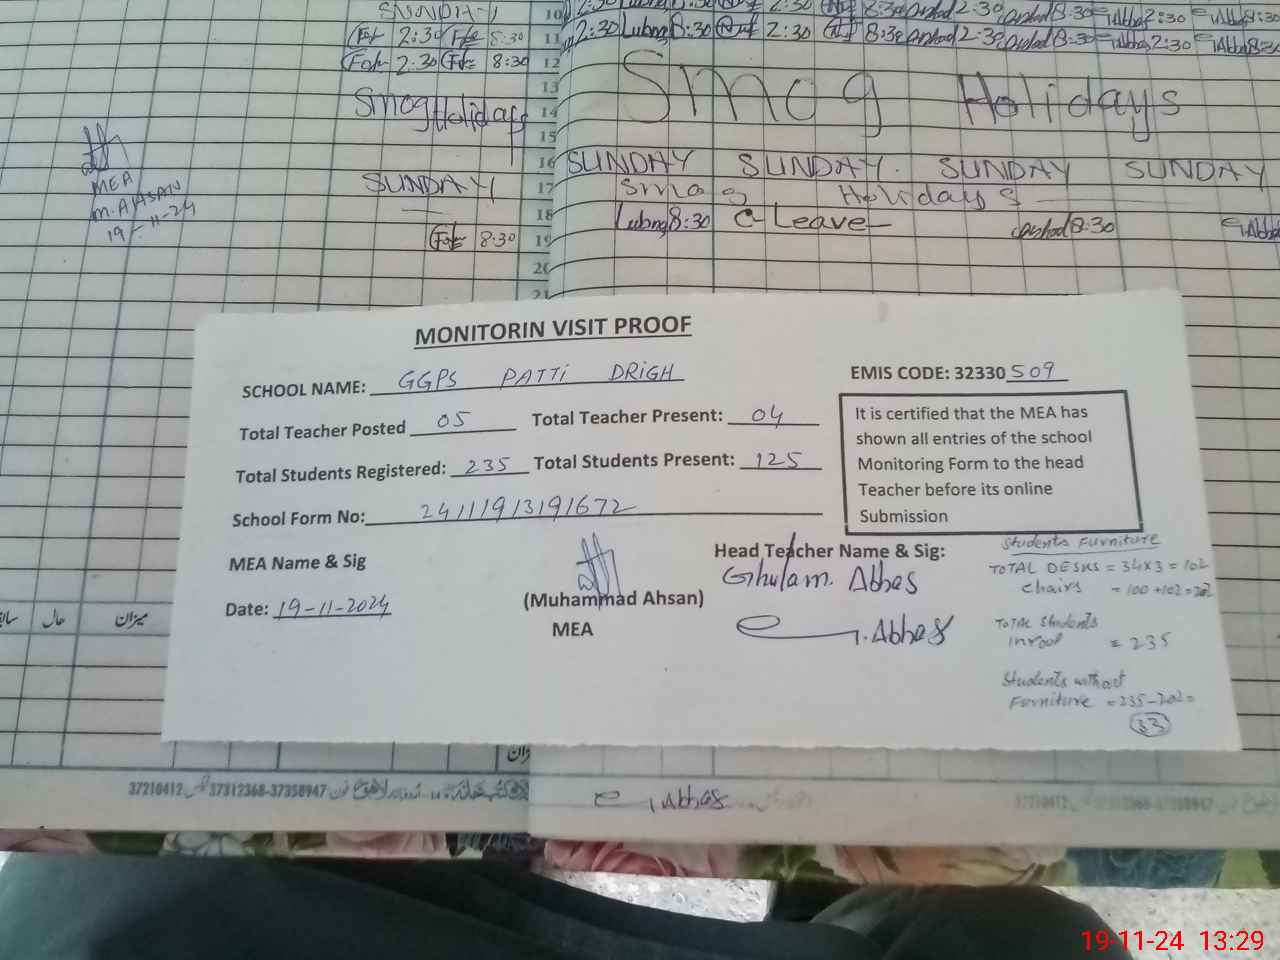 SUNDAY
2:30 8:30
2:30 8:30
Smog Holidays
MEA
M.AHSAN
19-11-24
SUNDAY
8:30
10
11 2:30 Lubna 8:30 2:30 8:30 Arshad 2:30 Arshad 8:30 Abbas 2:30 Abbas 8:30
12
13 Smog Holidays
14
15
16 SUNDAY SUNDAY. SUNDAY SUNDAY
17 Smog Holidays
18 Lubna 8:30 Leave Arshad 8:30 Abbas
19
20
21
MONITORIN VISIT PROOF
SCHOOL NAME: GGPS PATTI DRIGH
EMIS CODE: 32330 509
Total Teacher Posted 05 Total Teacher Present: 04
Total Students Registered: 235 Total Students Present: 125
School Form No: 24111913191672
It is certified that the MEA has
shown all entries of the school
Monitoring Form to the head
Teacher before its online
Submission
MEA Name & Sig
(Muhammad Ahsan)
MEA
Date: 19-11-2024
Head Teacher Name & Sig:
Ghulam Abbas
Abbas
Students Furniture
TOTAL DESKS = 34x3 = 102
Chairs = 100 +102 = 202
TOTAL Students
inrool = 235
Students without
Furniture = 235-202=
33
حال میزان
37210412 37312368-37358947
Abbas
19-11-24 13:29